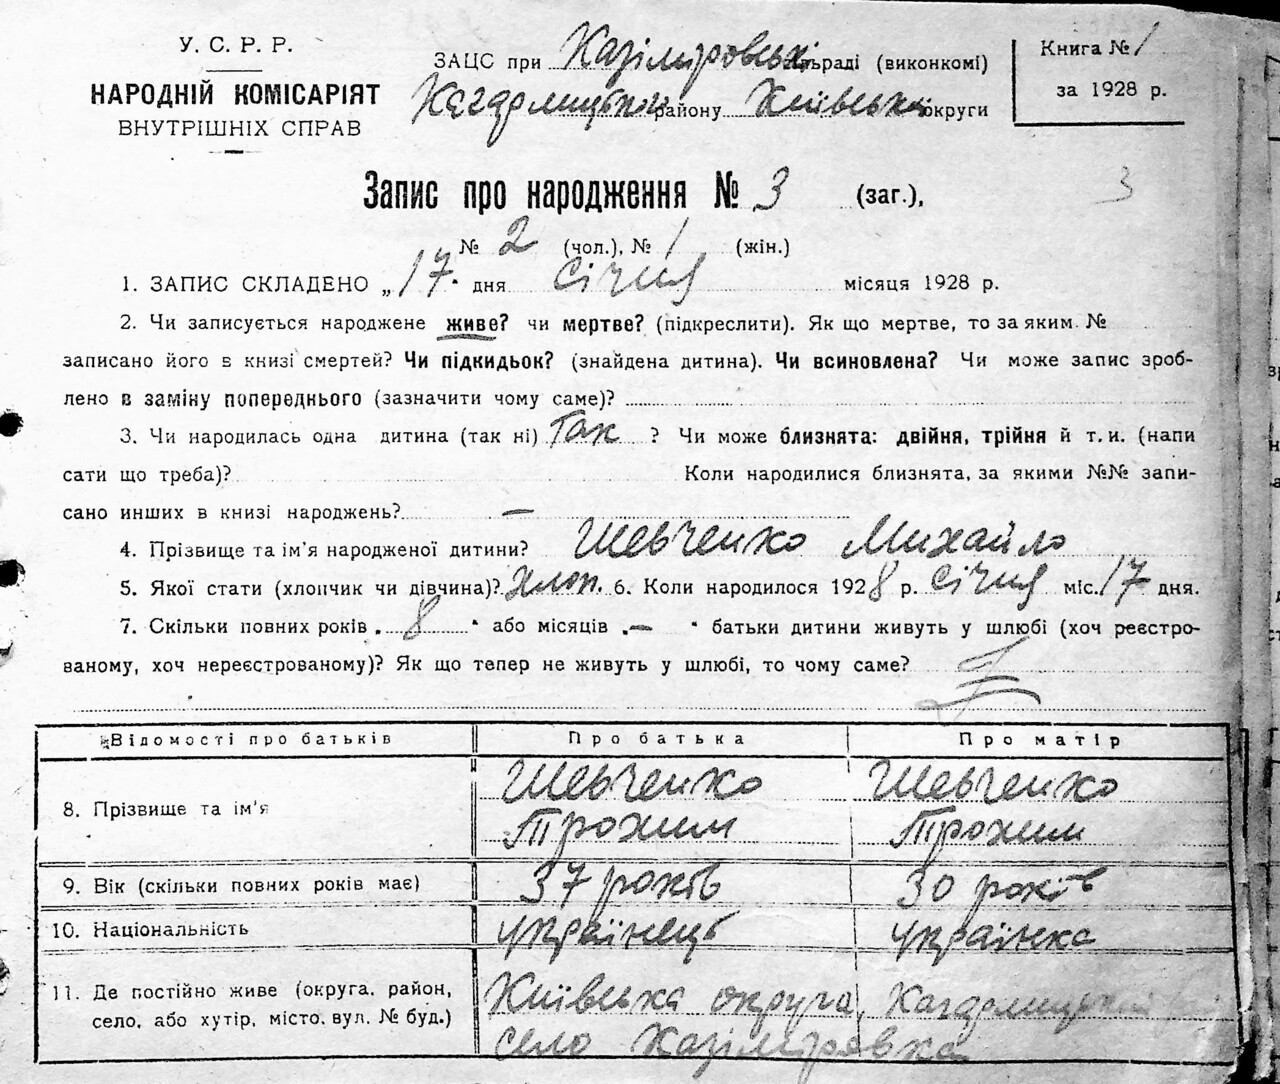 У. С. Р. Р.
НАРОДНІЙ КОМІСАРІЯТ
ВНУТРІШНІХ СПРАВ
ЗАЦС при Казіміровській сільраді (виконкомі)
Кагарлицького району Київська округи
Книга № 1
за 1928 р.
Запис про народження № 3 (заг.),
3
№ 2 (чол.), № 1 (жін.)
1. ЗАПИС СКЛАДЕНО „17" дня січня місяця 1928 р.
2. Чи записується народжене живе? чи мертве? (підкреслити). Як що мертве, то за яким №
записано його в книзі смертей? Чи підкидьок? (знайдена дитина). Чи всиновлена? Чи може запис зроб-
лено в заміну попереднього (зазначити чому саме)?
3. Чи народилась одна дитина (так ні) Так ? Чи може близнята: двійня, трійня й т. и. (напи
сати що треба)? Коли народилися близнята, за якими №№ запи-
сано инших в книзі народжень? —
4. Прізвище та ім'я народженої дитини? Шевченко Михайло
5. Якої стати (хлопчик чи дівчина)? хлоп. 6. Коли народилося 1928 р. січня міс. 17 дня.
7. Скільки повних років „8" або місяців „—" батьки дитини живуть у шлюбі (хоч реєстро-
ваному, хоч нереєстрованому)? Як що тепер не живуть у шлюбі, то чому саме?
Відомості про батьків Про батька Про матір
8. Прізвище та ім'я Шевченко Трохим Шевченко Трохим
9. Вік (скільки повних років має) 37 років 30 років
10. Національність українець українка
11. Де постійно живе (округа, район, Київська округа, Кагарлицький
село, або хутір, місто, вул. № буд.) село Казіміровка